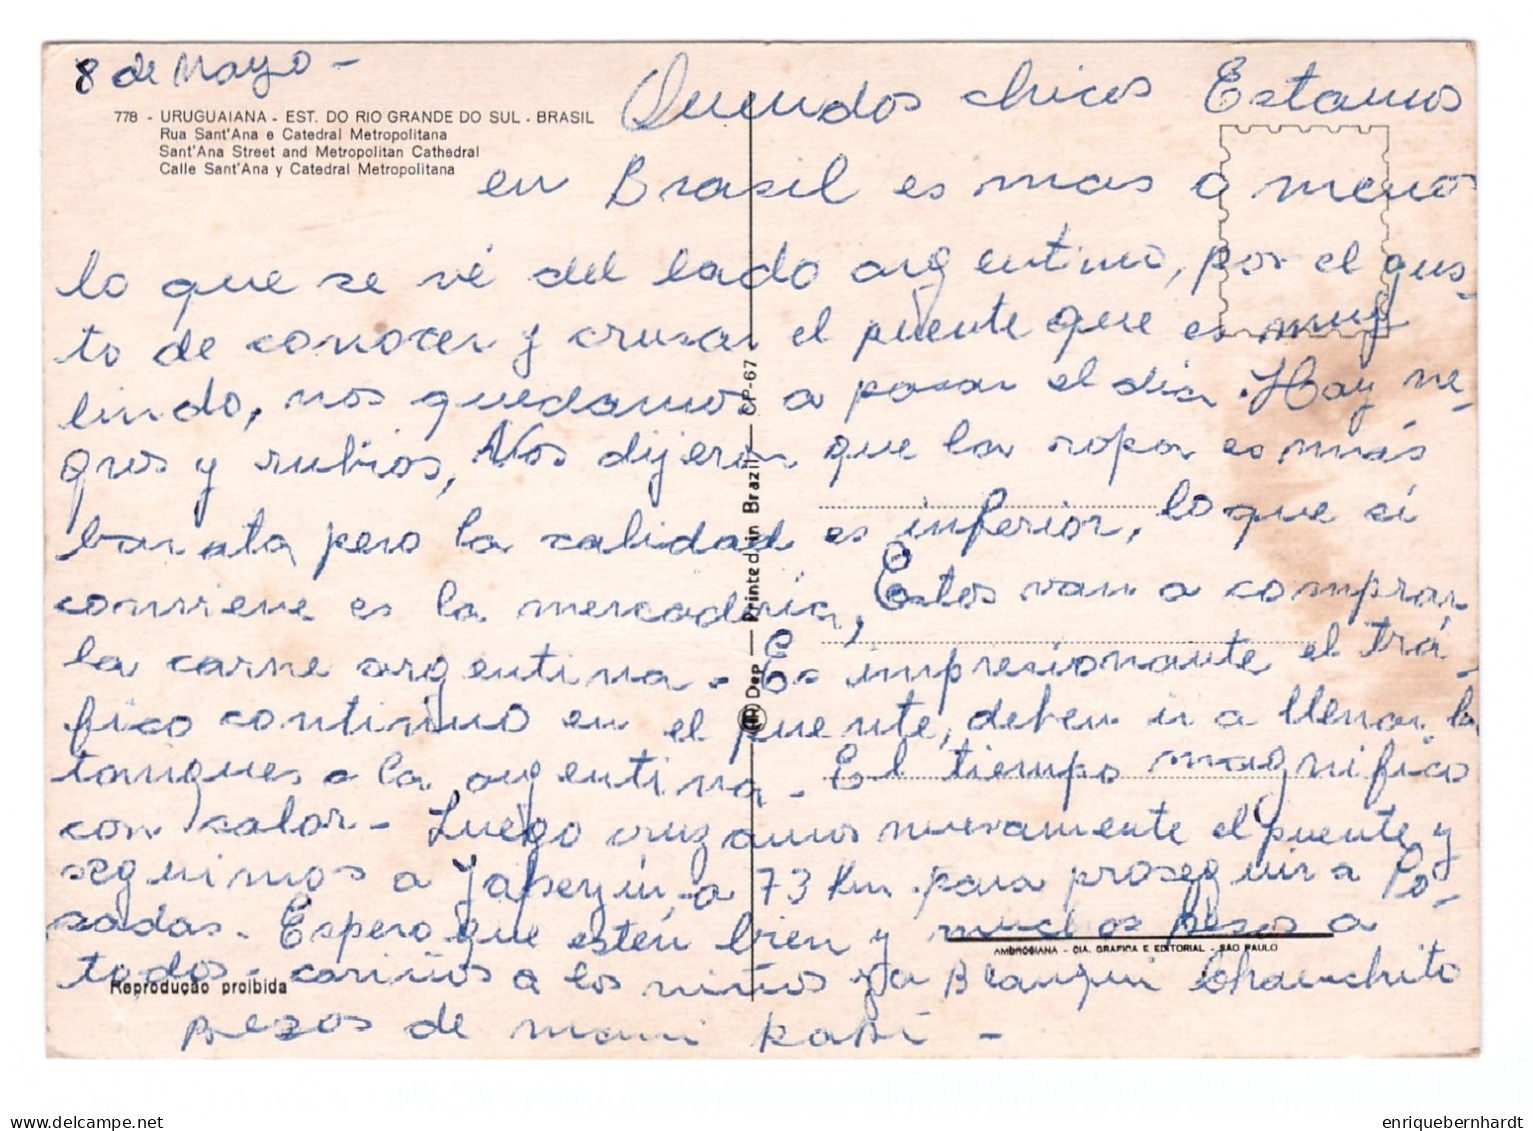 8 de Mayo -
778 - URUGUAIANA - EST. DO RIO GRANDE DO SUL - BRASIL
Rua Sant'Ana e Catedral Metropolitana
Sant'Ana Street and Metropolitan Cathedral
Calle Sant'Ana y Catedral Metropolitana
Queridos chicos Estamos
en Brasil es mas o menos
lo que se vé del lado argentino, por el gus-
to de conocer y crusar el puente que es muy
lindo, nos quedamos a pasar el dia. Hay ne-
gros y rubios, Nos dijeron que la ropa es más
barata pero la calidad es inferior, lo que sí
conviene es la mercadería, Estos van a comprar
la carne argentina. Es impresionante el trá-
fico continuo en el puente, deben ir a llenar los
tanques a la argentina. El tiempo magnifico
con calor - Luego cruzamos nuevamente el puente y
seguimos a Yapeyú, a 73 Km. para proseguir a Po-
sadas. Espero que estén bien y muchos besos a
todos - cariños a los niños y a Blanqui Chanchito
Besos de mami
CP-67
Printed in Brazil
Dep
AMBROSIANA - CIA. GRAFICA E EDITORIAL - SÃO PAULO
Reprodução proibida
enriquebernhardt.com